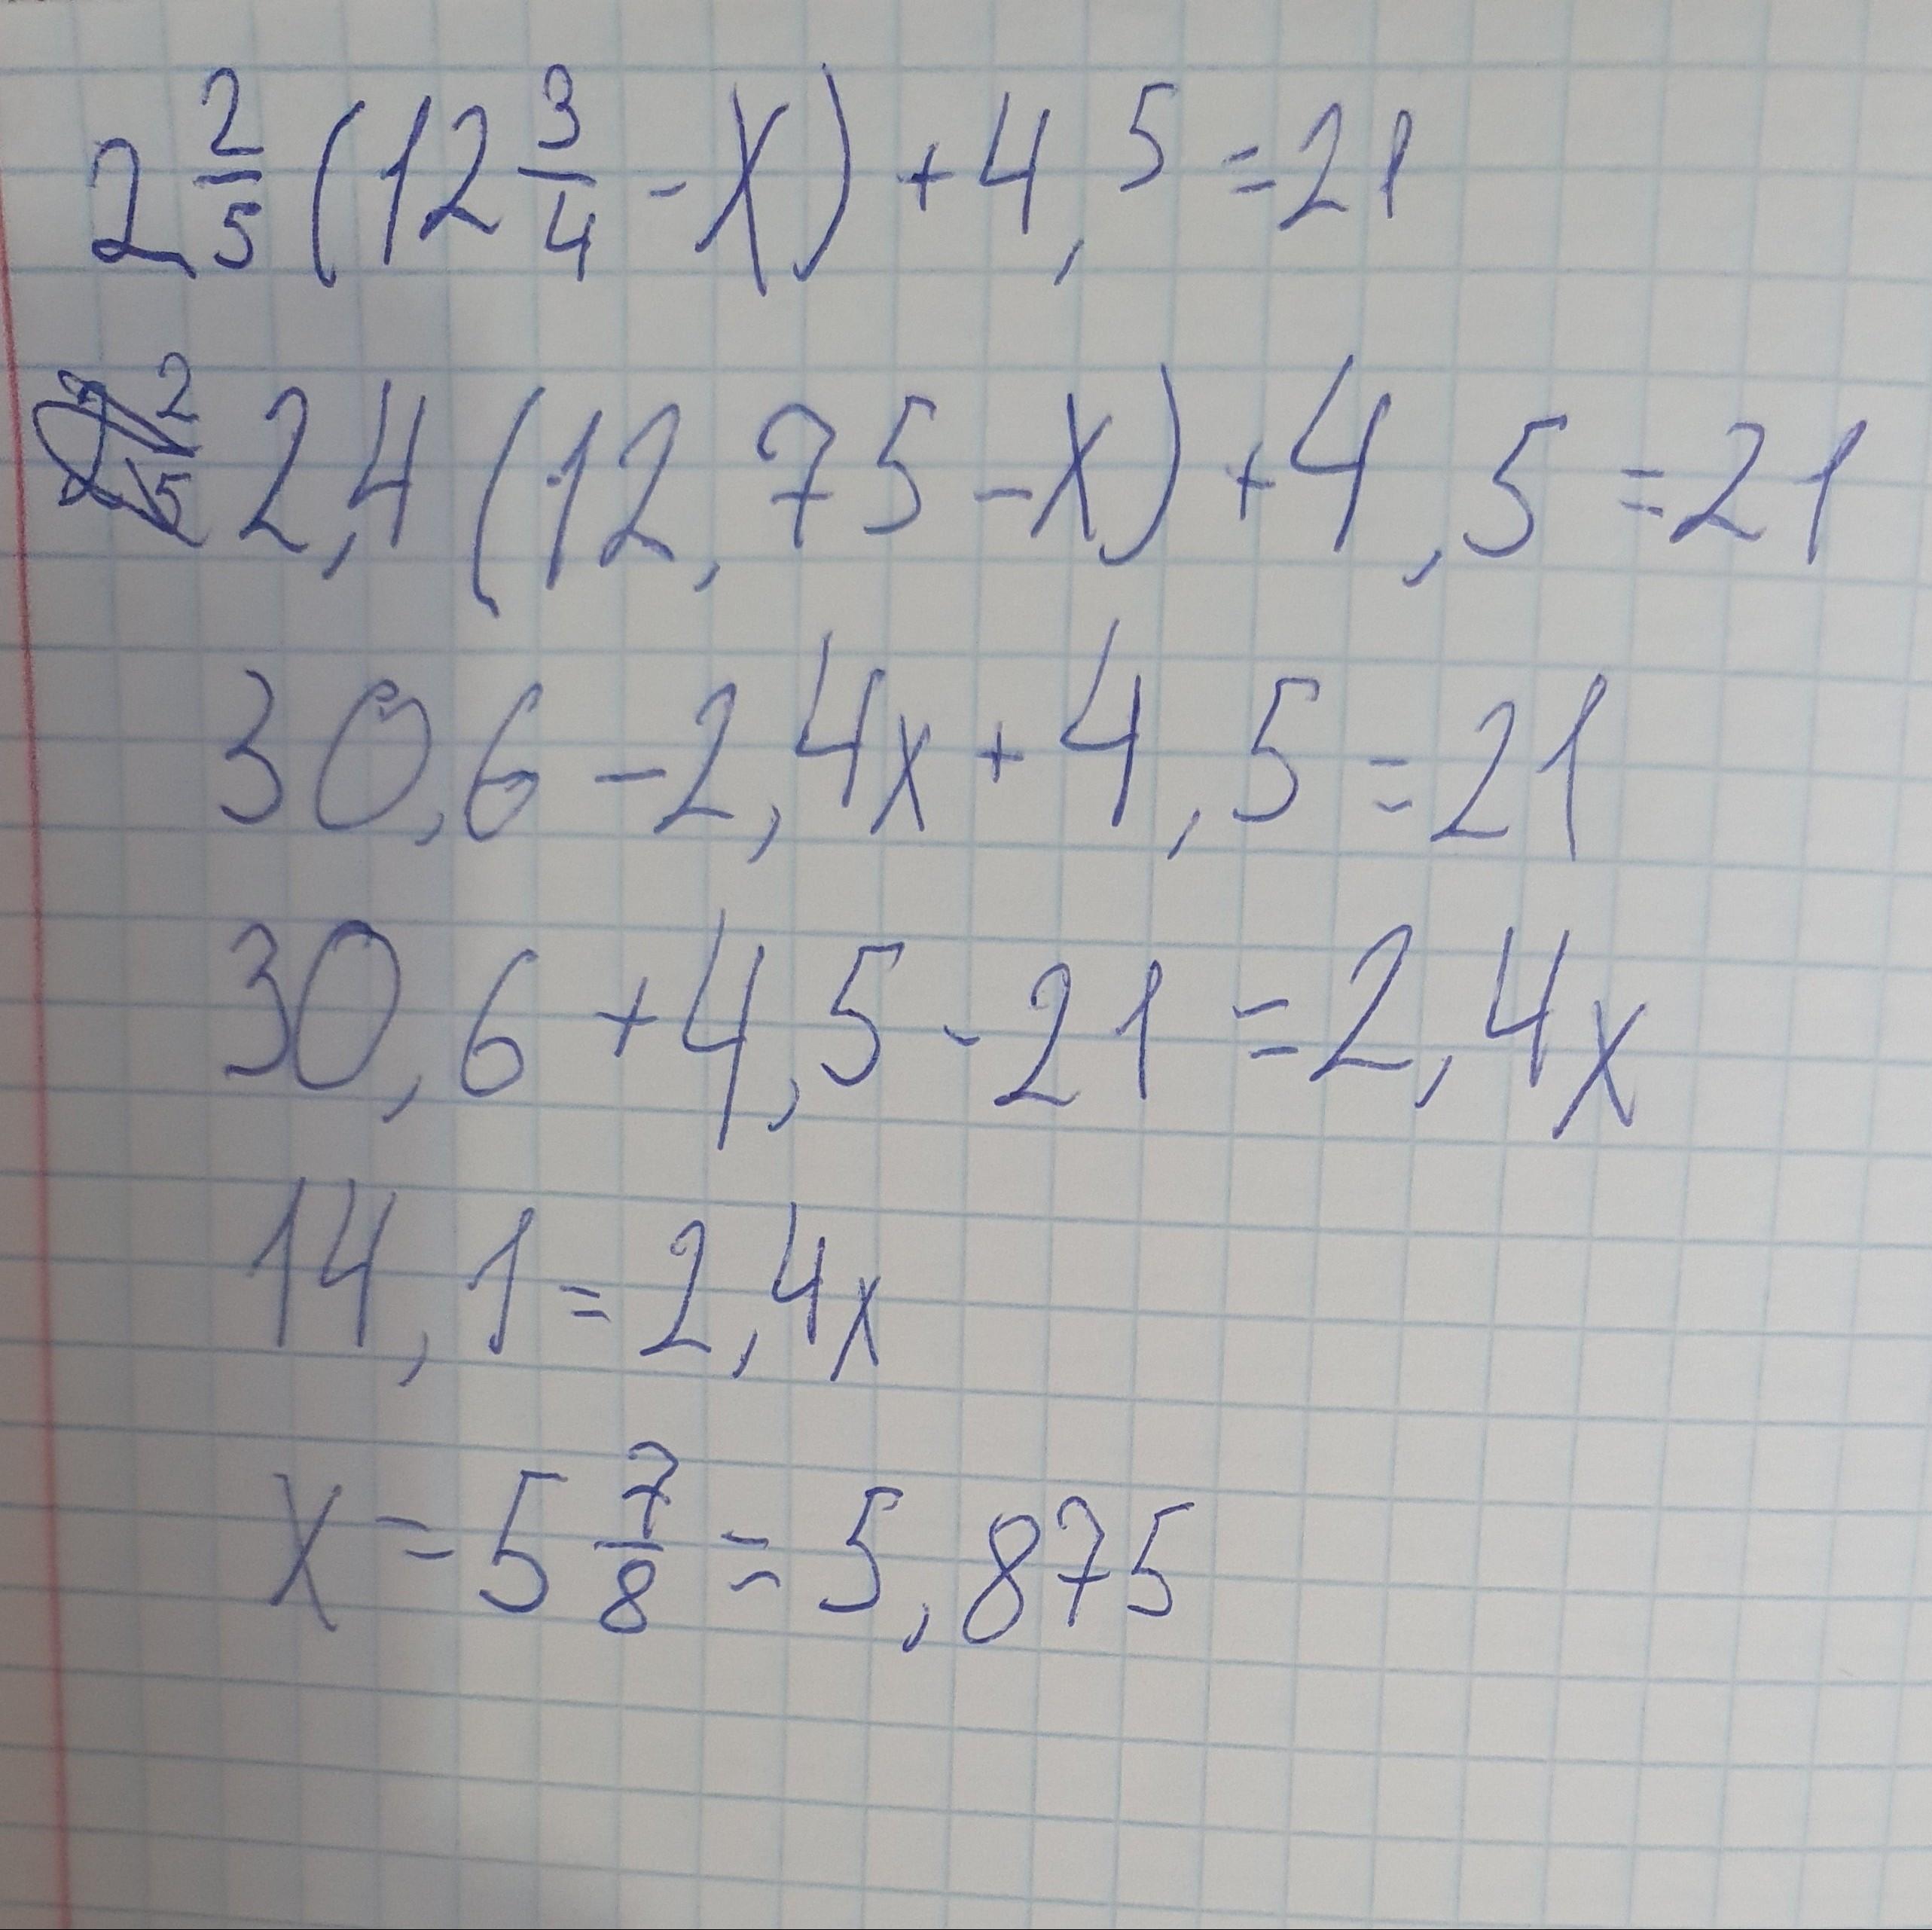 2 2/5 (12 3/4 - x) + 4,5 = 21
2,4 (12,75 - x) + 4,5 = 21
30,6 - 2,4x + 4,5 = 21
30,6 + 4,5 - 21 = 2,4x
14,1 = 2,4x
x = 5 7/8 = 5,875